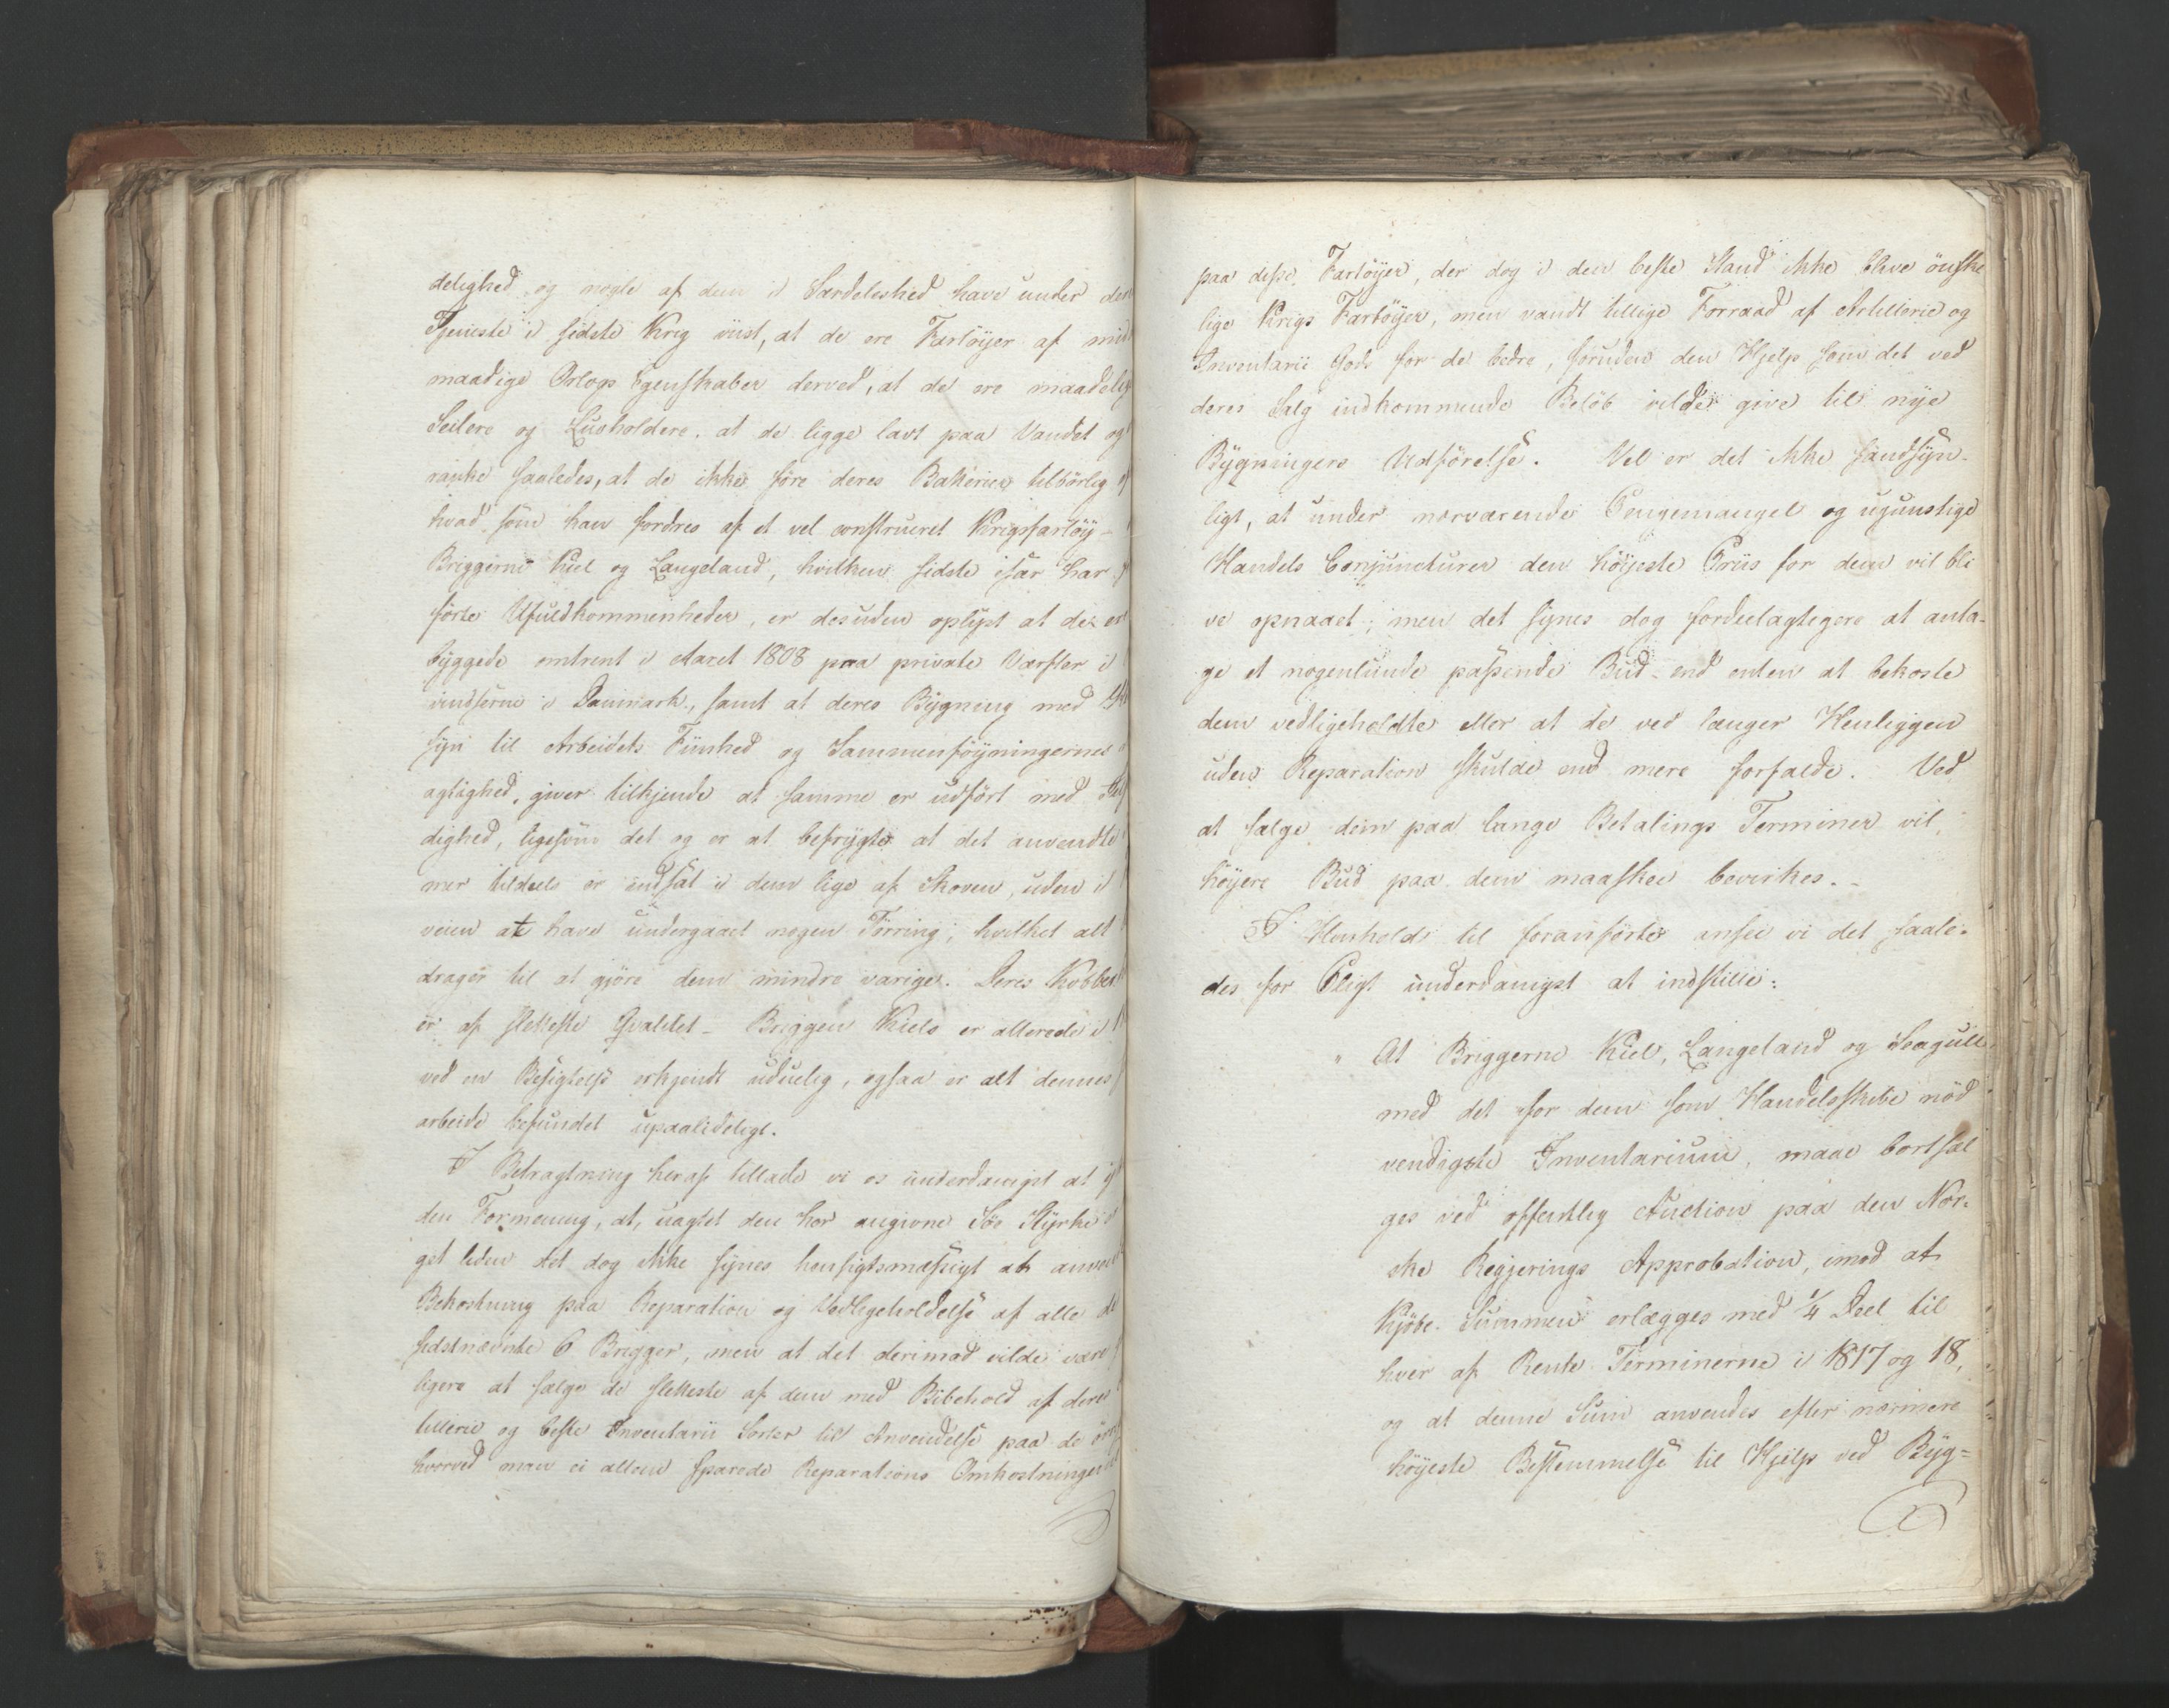 delighed og nogle af dem i Særdeleshed have under der
Tjeneste i sidste Krig viist, at de ere Fartöyer af mid
maadige Orlogs Egenskaber derved, at de ere maadelig
Seilere og Luvholdere, at de ligge lavt paa Vandet og
ranke saaledes, at de ikke före deres Batterier tilbörlig
hvad som kan fordres af et vel construeret Krigsfartöy -
Briggerne Kiel og Langeland, hvilken sidste især har
förte Ufuldkommenheder, er desuden oplyst at de er
byggede omtrent i Aaret 1808 paa private Værfter i
vindserne i Danmark, samt at deres Bygning med
syn til Arbeidets Fiinhed og Sammenföyningernes
agtighed, giver tilkjende at samme er udfört med
dighed, ligesom det og er at befrygte at det anvendte
mer tildeels er indsat i dem lige af Skoven, uden i
veien at have undergaaet nogen Törring; hvilket alt
drager til at gjöre dem mindre varige. Deres Kobber
er af sletteste Qvalitet - Briggen Kiels er allerede i
ved en Besigtelse erkjendt uduelig, ogsaa er alt dennes
arbeide befundet upaalideligt.
I Betragtning heraf tillade vi os underdanigst at
den Formening, at, uagtet den her angivne Söe Styrke
get liden det dog ikke synes hensigtsmæssigt at anven
Bekostning paa Reparation og Vedligeholdelse af alle de
sidstnævnte 6 Brigger, men at det derimod vilde være
ligere at sælge de sletteste af dem med Bibehold af deres
tillerie og beste Inventarii Sorter til Anvendelse paa de övr
hvorved man ei alleene sparede Reparations Omkostninger
paa disse Fartöyer, der dog i den beste Stand ikke bleve önske
lige Krigs Fartöyer, men vandt tillige Forraad af Artillerie og
Inventarii Gods for de bedre, foruden den Hjelp som det ved
deres Salg indkommende Belöb vilde give til nye
Bygningers Udförelse. Vel er det ikke sandsyn-
ligt, at under nærværende Pengemangel og ugunstige
Handels Conjuncturer den höyeste Priis for dem vil bli
ve opnaaet; men det synes dog fordeelagtigere at anta-
ge et nogenlunde passende Bud - end enten at bekoste
dem vedligeholdte eller at de ved længer Henliggen
uden Reparation skulde end mere forfalde. Ved
at sælge dem paa lange Betalings Terminer vil
höyere Bud paa dem maaskee bevirkes. -
I Henhold til foranförte ansee vi det saale-
des for Pligt underdanigst at indstille:
" At Briggerne Kiel, Langeland og Seagull
med det for dem som Handelsskibe nöd
vendigste Inventarium, maae bortsæl
ges ved offentlig Auction paa den Nor-
ske Regjerings Approbation, imod at
Kjöbe Summen erlægges med 1/4 Deel til
hver af Rente Terminerne i 1817 og 18,
og at denne Sum anvendes efter nærmere
höyeste Bestemmelse til Hjelp ved Byg=